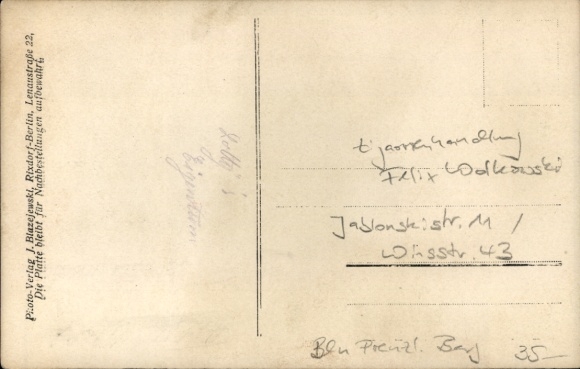 Photo-Verlag J. Blazejewski, Rixdorf-Berlin, Lenaustraße 22,
Die Platte bleibt für Nachbestellungen aufbewahrt.
Eigentum
Zigarrenhandlung
Felix Wolkowski
Jablonskistr. 11 /
Winsstr. 43
Bln Prenzl. Berg 35—